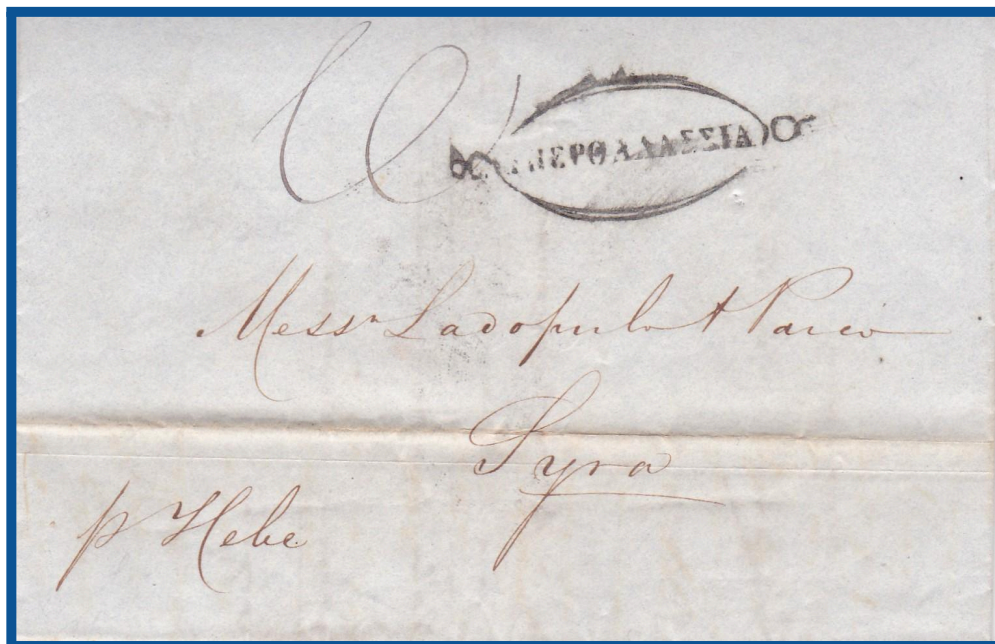 ΥΠΕΡΘΑΛΑΣΣΙΑ
Messrs Ladopulo &
Syra
p Hebe